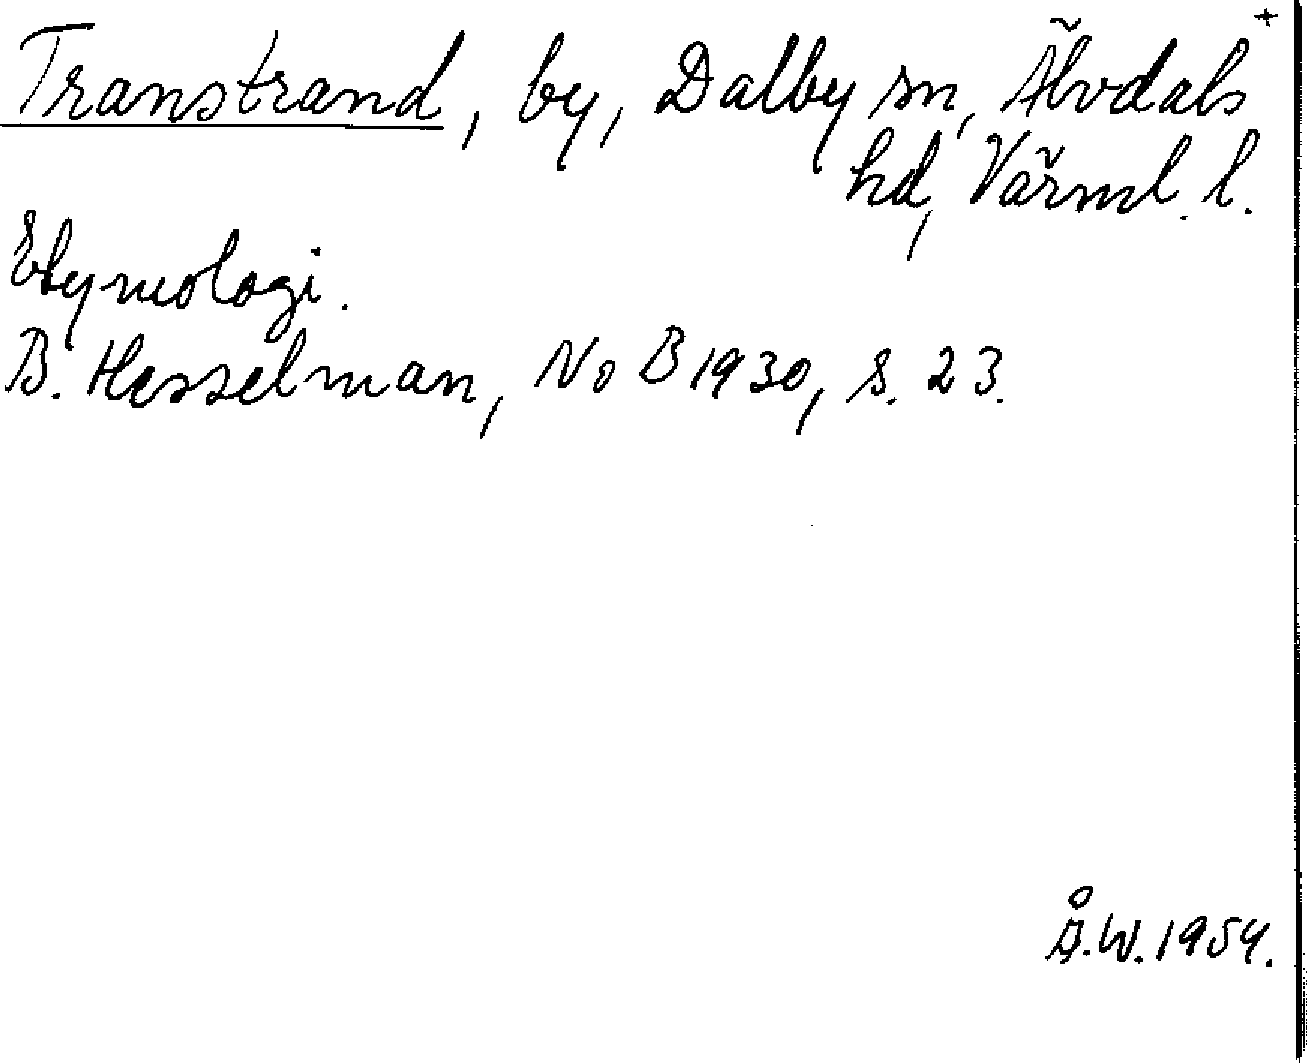 Transtrand, by, Dalby sn, Älvdals +
hd, Värml. l.
Etymologi.
B. Hesselman, NoB 1930, s. 23.
Å.W. 1954.